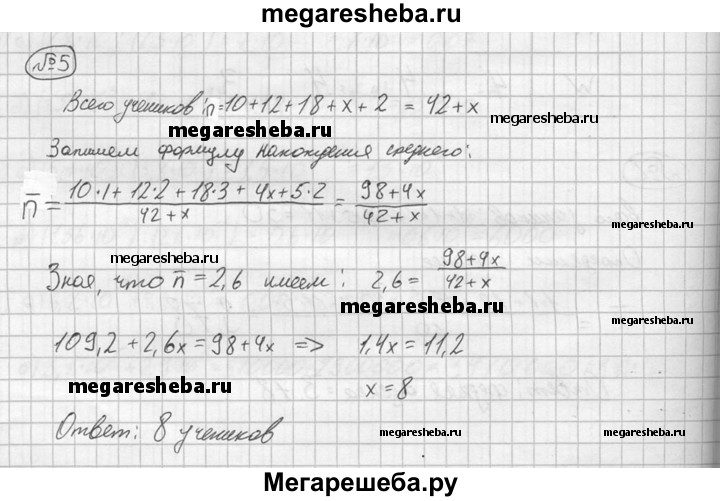 megaresheba.ru
№5
Всего учеников: n=10+12+18+x+2 = 42+x
megaresheba.ru
megaresheba.ru
Запишем формулу нахождения среднего:
n̅ = (10·1+12·2+18·3+4x+5·2)/(42+x) = (98+4x)/(42+x)
megaresheba.ru
megaresheba.ru
Зная, что n̅ = 2,6 имеем: 2,6 = (98+4x)/(42+x)
megaresheba.ru
megaresheba.ru
109,2+2,6x=98+4x => 1,4x=11,2
megaresheba.ru
x=8
Ответ: 8 учеников
megaresheba.ru
megaresheba.ru
Мегарешеба.ру